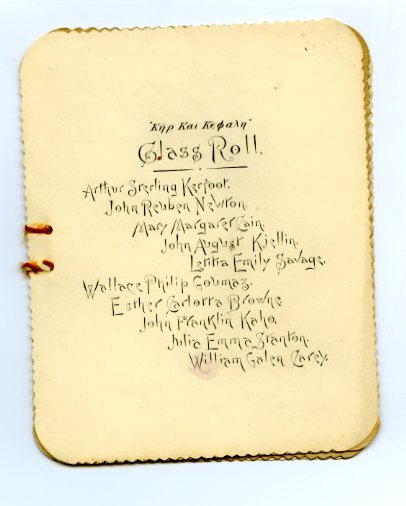 "Κῆρ Και Κεφαλη"
Class Roll.
Arthur Sterling Kerfoot.
John Reuben Newton.
Mary Margaret Cain.
John August Kjellin.
Letitia Emily Savage.
Wallace Philip Goumaz.
Esther Carlotta Browne
John Franklin Kaho.
Julia Emma Stanton.
William Galen Carey.